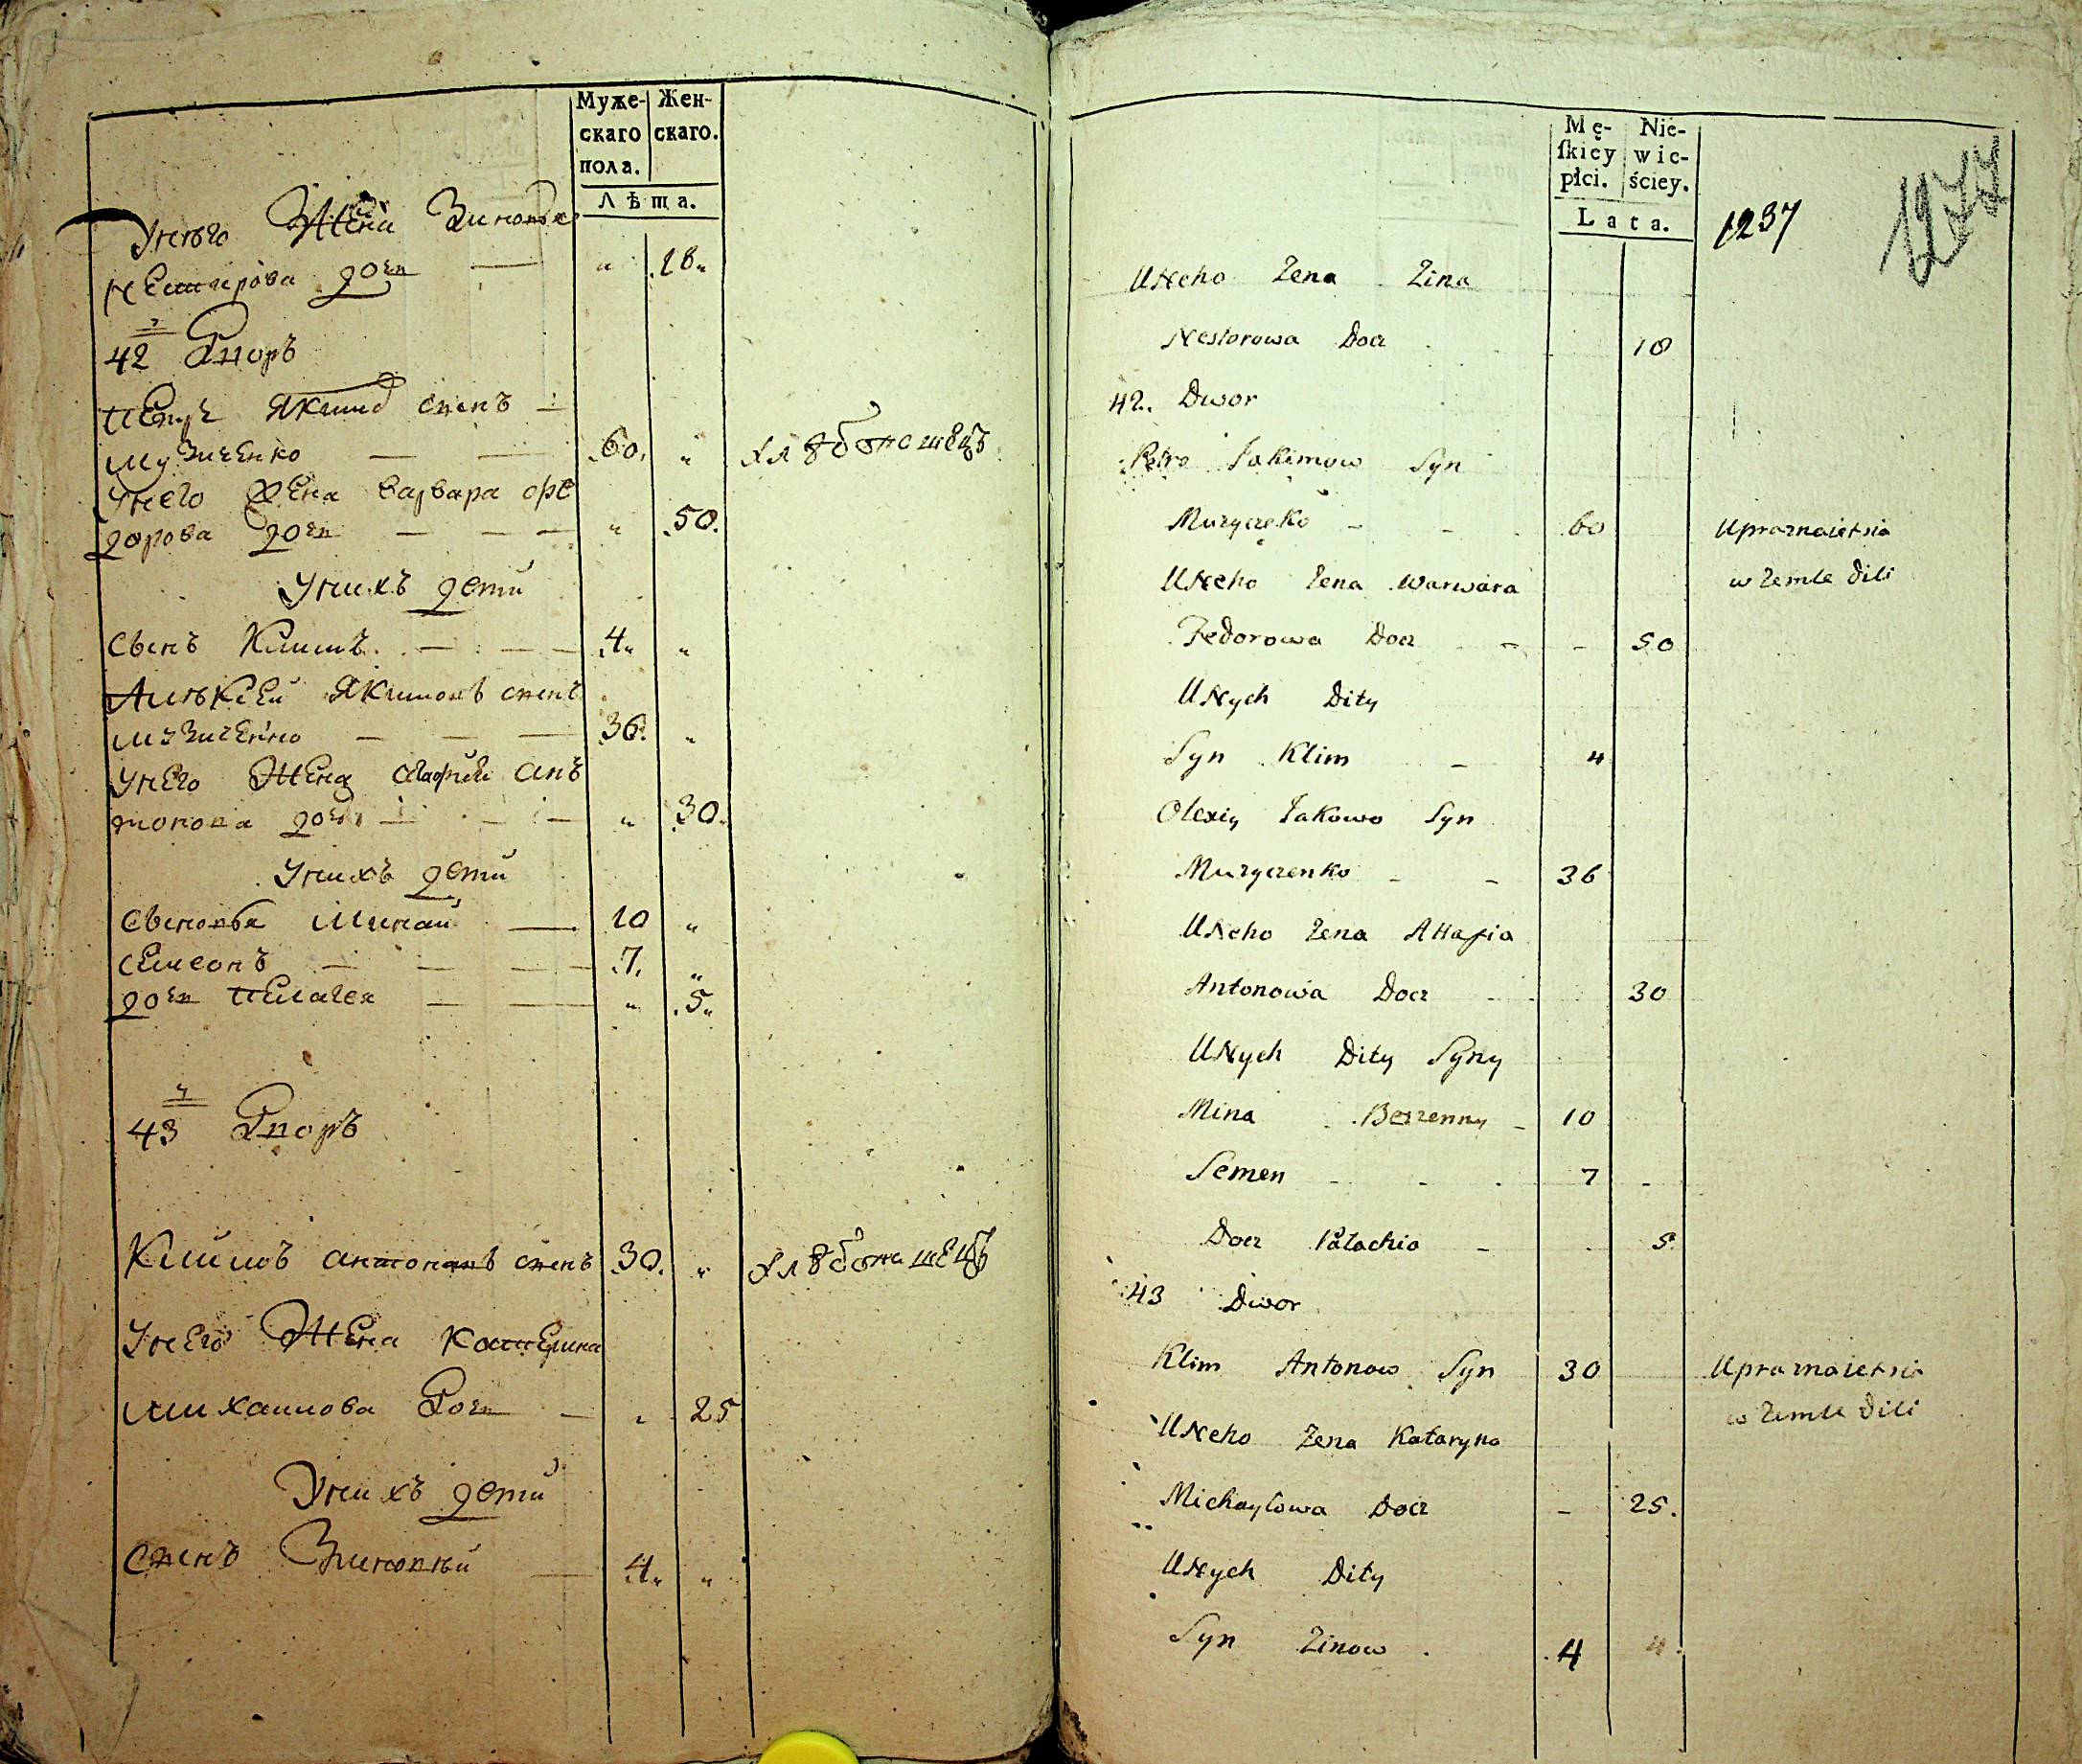 Муже-
скаго
пола.
Жен-
скаго.
Лѣта.
Унего Жена Зиновья
Нестерова дочь — „ 18„
42 Дворъ
Петръ Якимовъ сынъ —
Музиченко — — 60. „ хлѣбопашецъ
Унего Жена варвара фе
дорова дочь — — — „ 50.
Унихъ дети
Сынъ Климъ — — — 4„ „
Алѣксей Якимовъ сынъ
музиченко — — — 36. „
Унего Жена Агафия ан
тонова дочь — — — „ 30.
Унихъ дети
Сыновья Минай — 10 „
Семеонъ — — — 7. „
дочь Пелагея — — „ 5„
43 Дворъ
Климъ антоновъ сынъ 30. „ хлѣбопашецъ
Унего Жена Катерина
михаилова Дочь — „ 25
Унихъ дети
Сынъ Зиновий — 4„ „
Mę-
ſkiey
płci.
Nie-
wie-
ściey.
Lata.
1237
1277
UNeho Zena Zina
Nestorowa Docz 18
42. Dwor
Petro Jakimow Syn
Muzyczeko - - 60 Upraznaietsia
w Zemle dili
UNeho Zena Warwara
Fedorowa Docz - - 50
UNych Dity
Syn Klim - 4
Olexiy Jakowo Syn
Muzyczenko - - 36
UNeho Zena Ahafia
Antonowa Docz 30
UNych Dity Syny
Mina 10
Semen - - - 7 -
Docz Pałachia - 5.
43 Dwor
Klim Antonow Syn 30 Upraznaietsia
w Zemle dili
UNeho Zena Kataryna
Michayłowa Docz - 25.
UNych Dity
Syn Zinow . 4